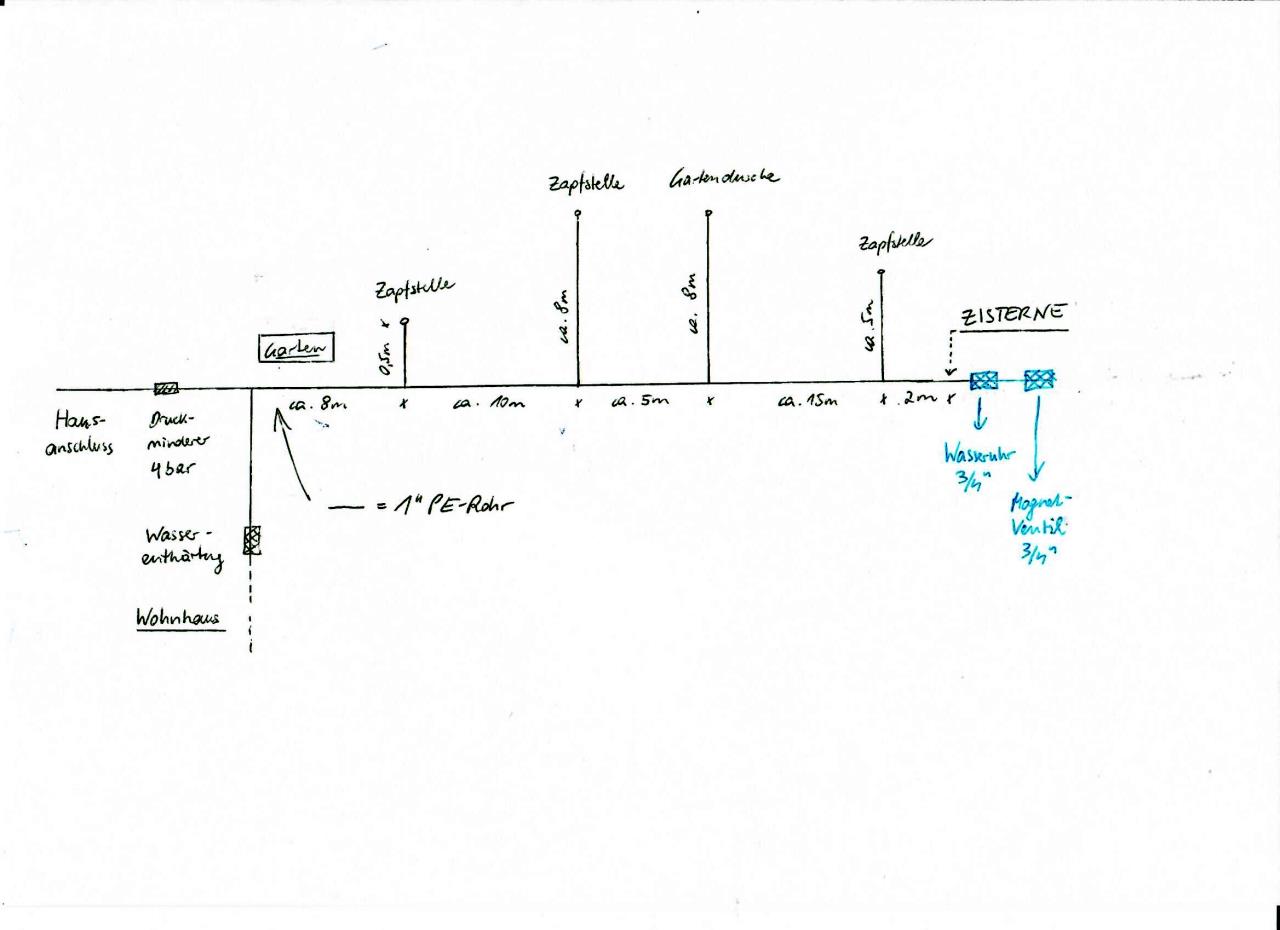 Zapfstelle
Gartendusche
Zapfstelle
Zapfstelle
ZISTERNE
Garten
0,5m x
ca. 8m
ca. 8m
ca. 5m
ca. 8m x ca. 10m x ca. 5m x ca. 15m x 2m x
Haus-
anschluss
Druck-
minderer
4bar
Wasseruhr
3/4"
Magnet-
Ventil
3/4"
— = 1" PE-Rohr
Wasser-
enthärtung
Wohnhaus